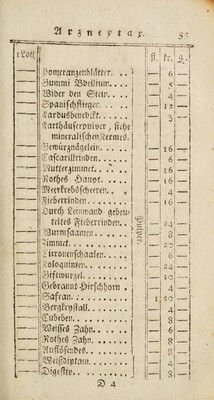 Arzneytax. 55
1 Loth fl. kr. ₰.
Pomeranzenblätter. . . — 6 —
Gummi Bdellium. . . . — 5 —
Wider den Stein. . . — 4 —
Spanischfliegen. . . . — 12 —
Cardusbenedikt. . . . — 3 —
Karthäuserpulver, siehe
mineralischen Kermes.
Gewürznägelein. . . . — 16 —
Cascarillrinden. . . . — 6 —
Mutterzimmet. . . . — 16 —
Rothes Haupt. . . . — 16 —
Meerkrebsscheeren. . . — 4 —
Fieberrinden. . . . — 16 —
Durch Leinwand gebeu
teltes Fieberrinden. . . — 24 —
Wurmsaamen. . . . — 8 —
Zimmet. . . . — 20 —
Citronenschaalen. . . — 6 —
Koloquinten. . . . — 24 —
Giftwurzel. . . . — 10 —
Gebrannt Hirschhorn . — 4 —
Safran. . . . 1 20 —
Bergkrystall. . . . — 4 —
Cubeben. . . . — 8 —
Weisses Zahn. . . . — 6 —
Rothes Zahn. . . . — 8 —
Auflösendes. . . . — 8 —
Weißdiptam. . . . — 4 —
Digestiv. . . . — 8 —
D 4